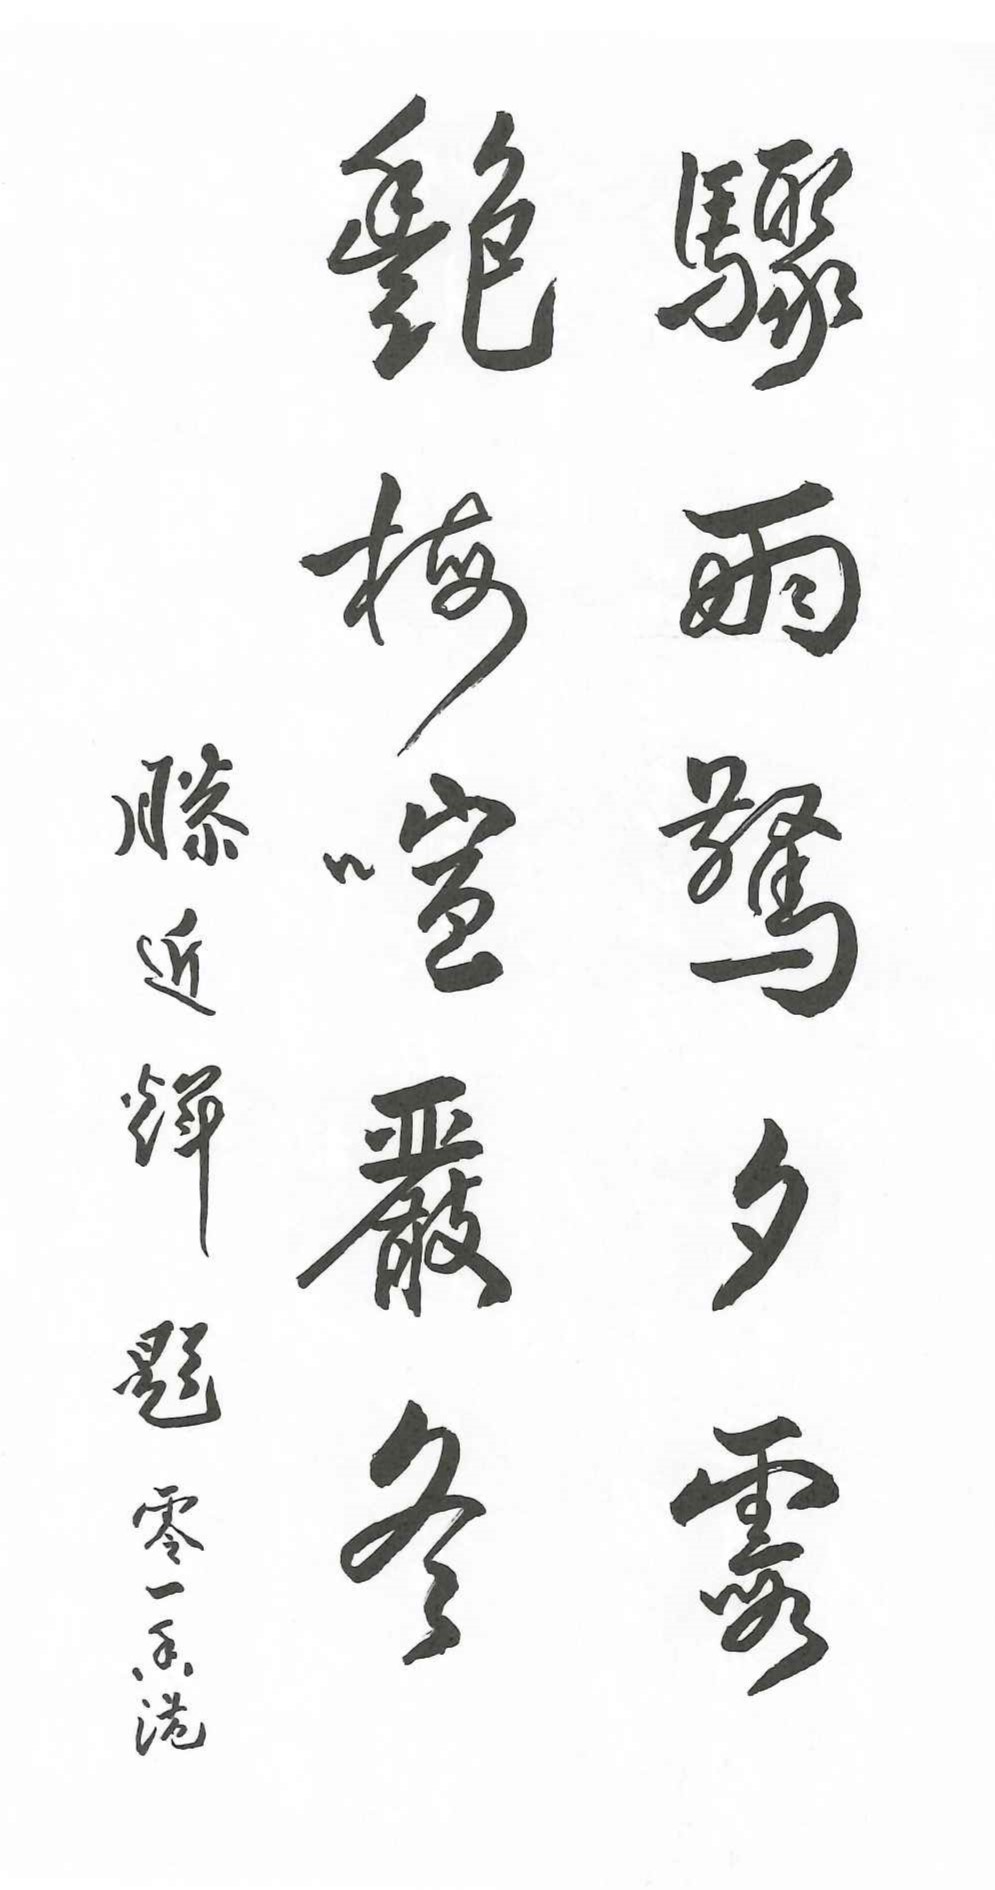 驟雨驚夕霞
艷梅喧嚴冬
滕近輝題 零一香港